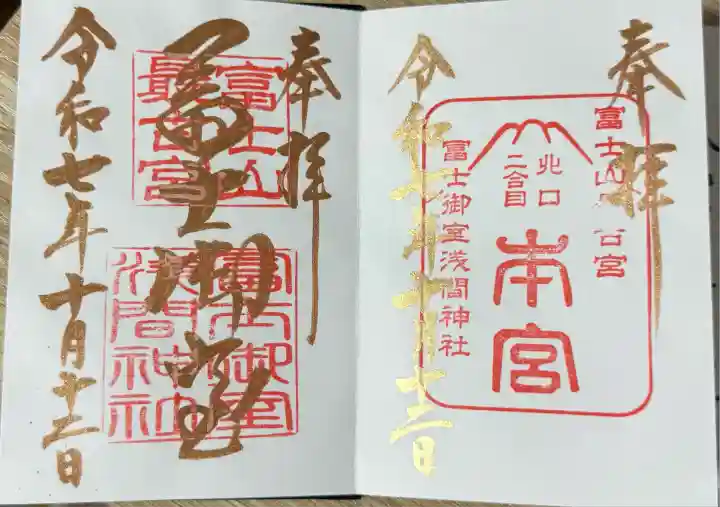 奉拝
富士山最古宮
北口
二合目
本宮
富士御室浅間神社
令和七年十月十二日
奉拝
富士山
最古宮
富士御室
富士御室
浅間神社
令和七年十月十二日